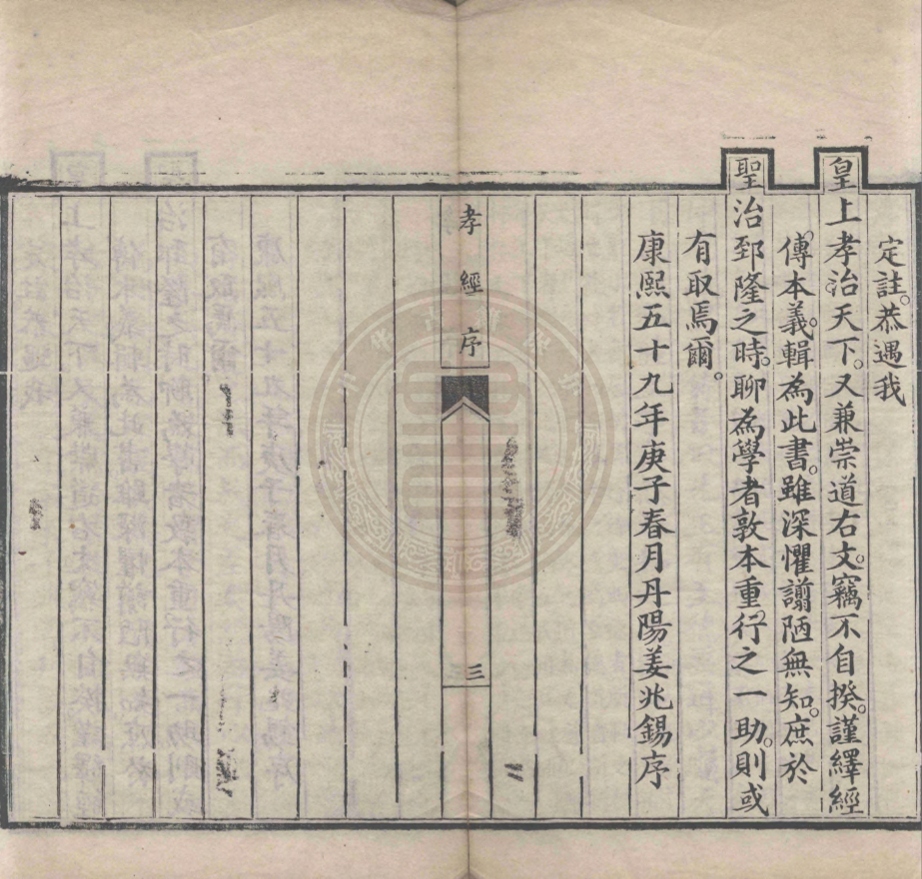 定註。恭遇我
皇上孝治天下。又兼崇道右文。竊不自揆。謹繹經
傳本義。輯為此書。雖深懼譾陋無知。庶於
聖治郅隆之時。聊為學者敦本重行之一助。則或
有取焉爾。
康熙五十九年庚子春月丹陽姜兆錫序
孝經序
三